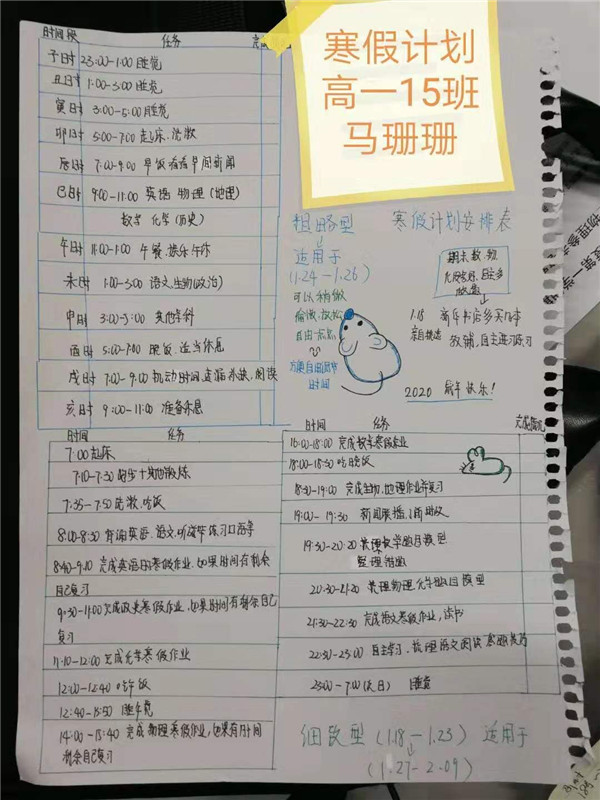 寒假计划
高一15班
马珊珊
时间段 任务
子时 23:00-1:00 睡觉
丑时 1:00-3:00 睡觉
寅时 3:00-5:00 睡觉
卯时 5:00-7:00 起床、洗漱
辰时 7:00-9:00 早饭 看看早间新闻
巳时 9:00-11:00 英语 物理(地理)
数学 化学(历史)
午时 11:00-1:00 午餐、娱乐、午休
未时 1:00-3:00 语文、生物(政治)
申时 3:00-5:00 其他学科
酉时 5:00-7:00 晚饭、适当休息
戌时 7:00-9:00 机动时间、查漏补缺、阅读
亥时 9:00-11:00 准备休息
粗略型
适用于
(1.24-1.26)
可以稍微
偷懒、放松
自由一点点
方便自由调节
时间
寒假计划安排表
期末数、物
1.18 新年书店多买几本
亲自挑选 教辅,自主练习
2020 新年快乐!
时间 任务
7:00 起床
7:10-7:30 跑步+其他锻炼
7:35-7:50 洗漱、吃饭
8:00-8:30 背诵英语、语文、听 练习口语等
8:40-9:10 完成英语的寒假作业,如果时间有剩余
自己复习
9:30-11:00 完成政史寒假作业,如果时间有剩余自己
复习
11:10-12:00 完成化学寒假作业
12:00-12:40 吃午饭
12:40-13:50 睡午觉
14:00-15:40 完成物理寒假作业,如果有时间
剩余自己复习
时间 任务 完成情况
16:00-18:00 完成数学寒假作业
18:00-18:30 吃晚饭
18:30-19:00 完成生物、地理作业并复习
19:00-19:30 新闻联播
19:30-20:20 整理数学的题模型
整理错题
20:30-21:20 整理物理、化学的题模型
21:30-22:30 完成语文寒假作业,读书
22:30-23:00 自主学习,整理语文阅读
23:00-7:00(次日) 睡觉
细致型 (1.18-1.23) 适用于
(1.27-2.09)